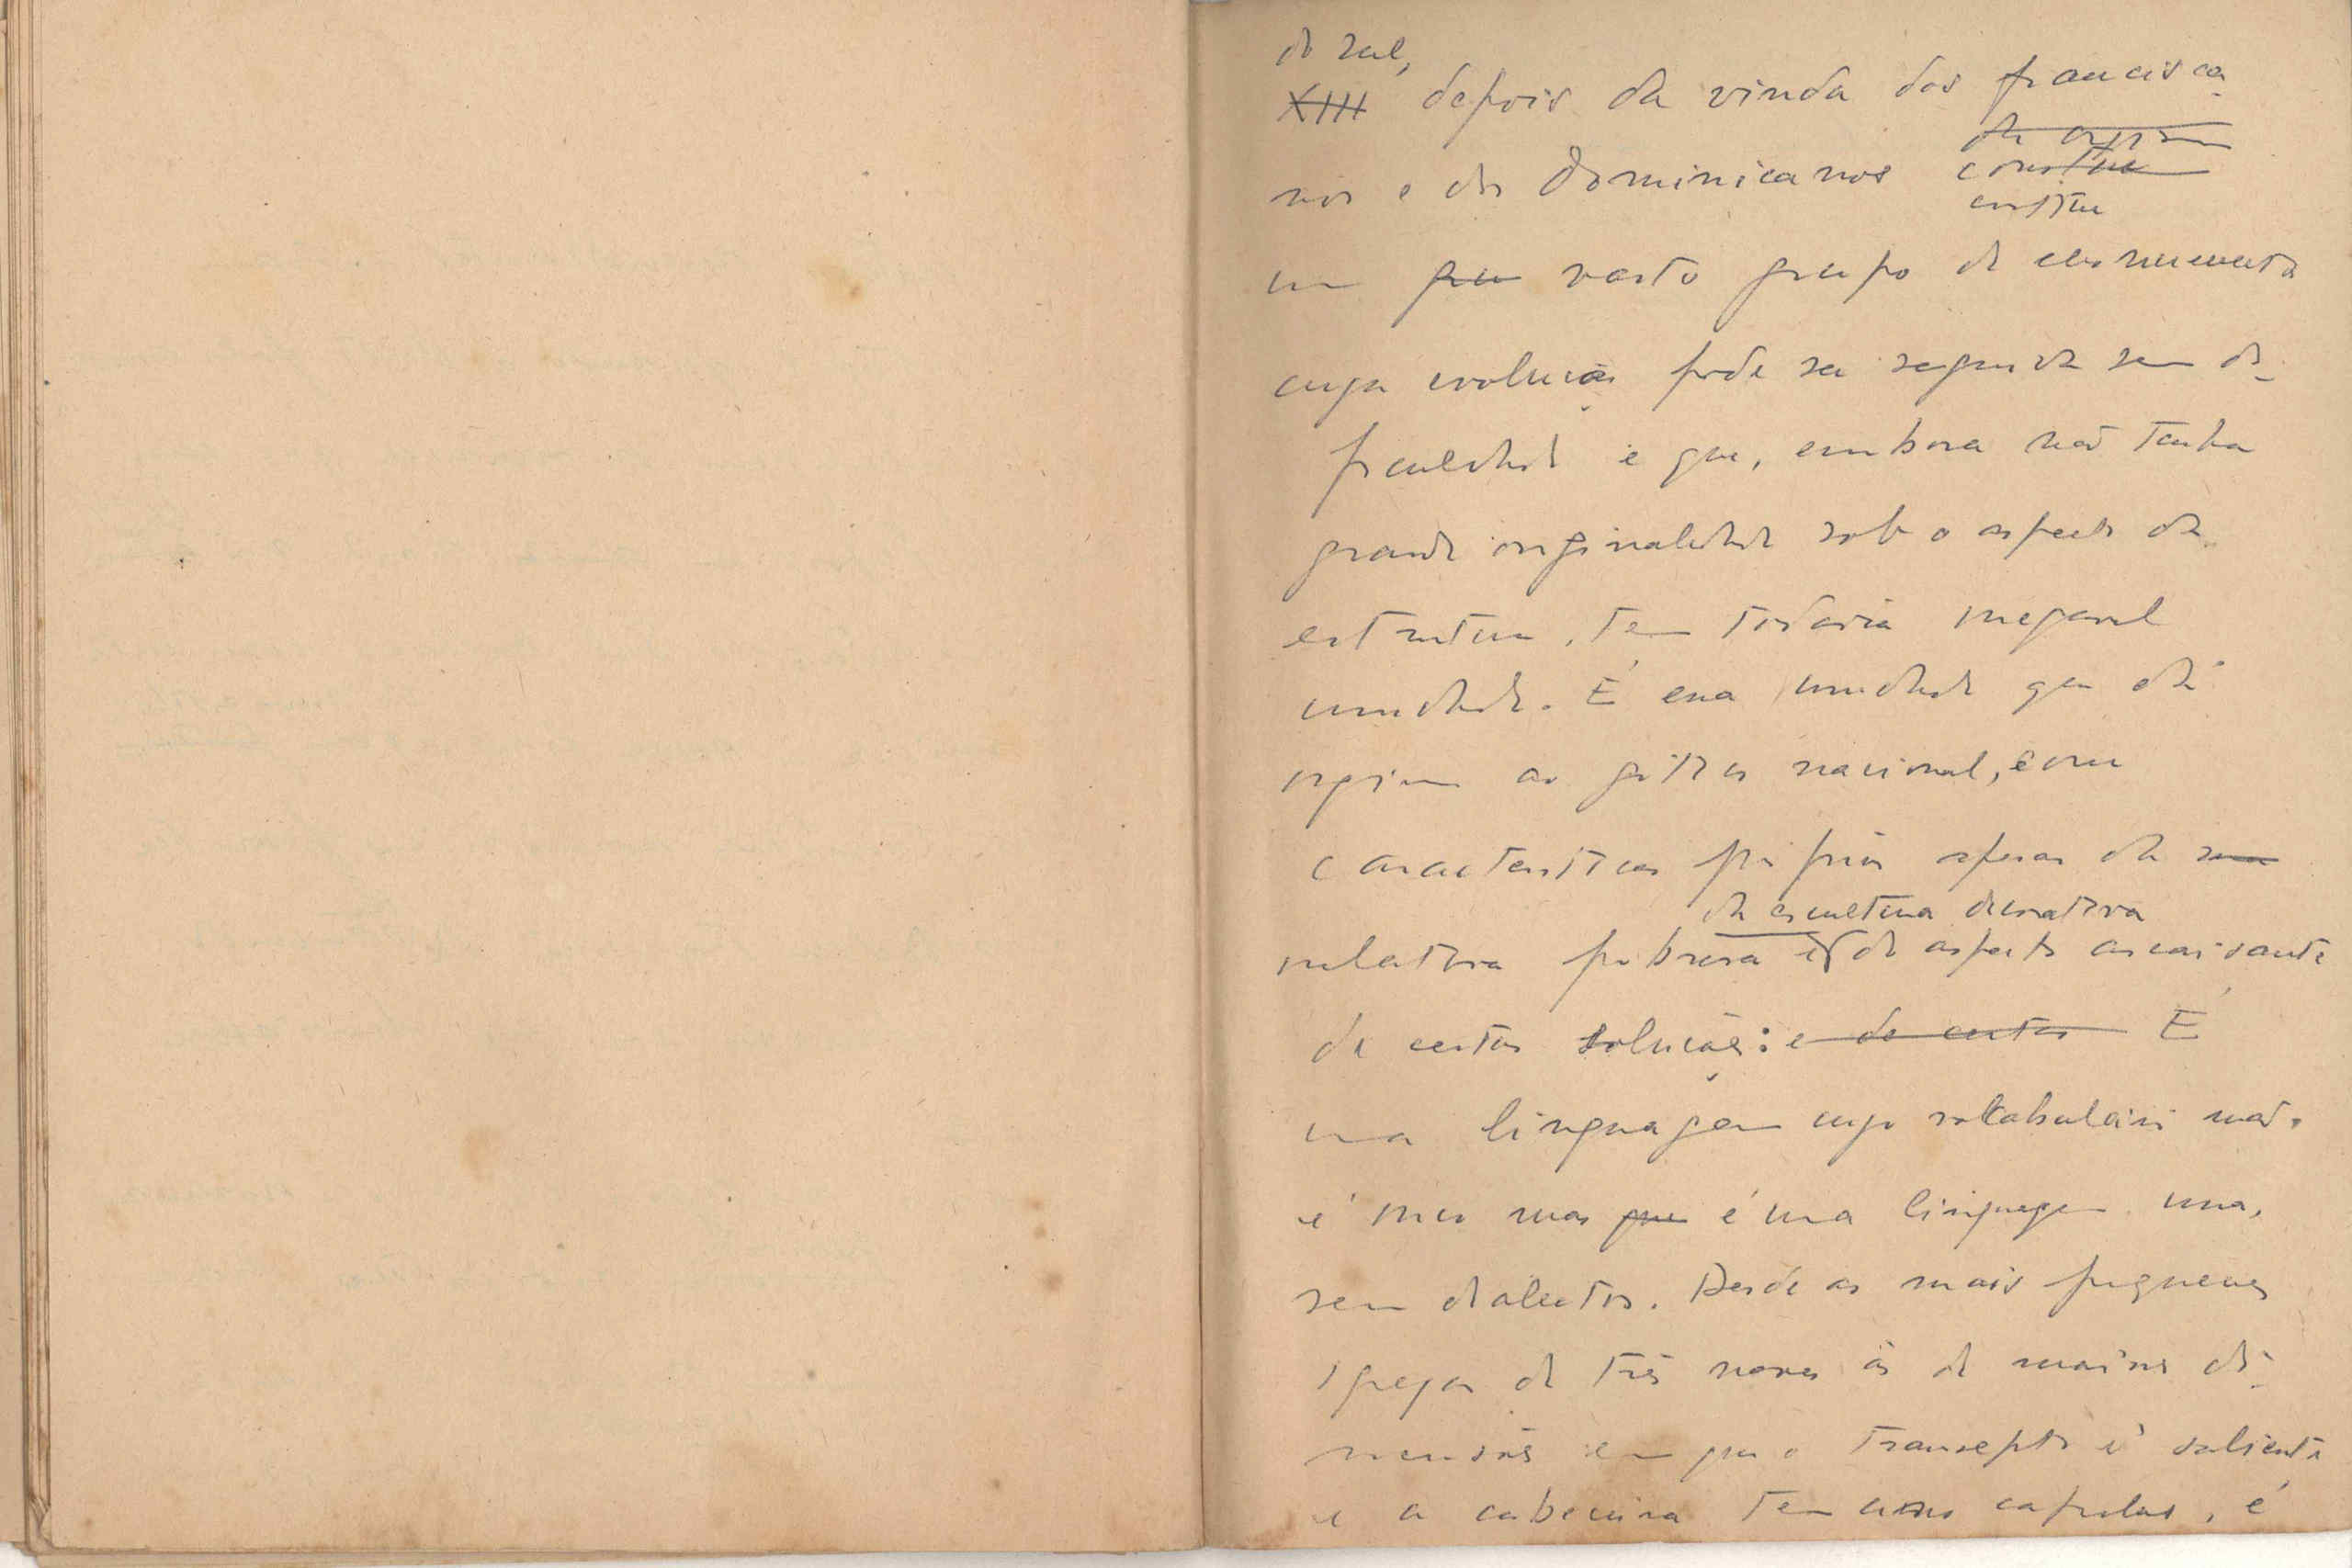 do sul,
XIII depois da vinda dos francisca-
nos e dos dominicanos da origem
constitue
constitue
um gru vasto grupo de monumentos
cuja evolução pode ser seguida sem di-
ficuldade e que, embora não tenha
grande originalidade sob o aspecto da
estrutura, tem todavia inegavel
unidade. É essa unidade que dá
origem ao gótico nacional, com
caracteristicas próprias apesar da sua
da escultura decorativa
relativa pobreza e do aspecto arcaisante
de certas soluções: e de certas É
uma linguagem cujo vocabulário não
é rico mas que é uma linguagem una,
sem dialectos. Desde as mais pequenas
igrejas de três naves às de maiores di-
mensões em que o transepto é saliente
e a cabeceira tem capelas, é